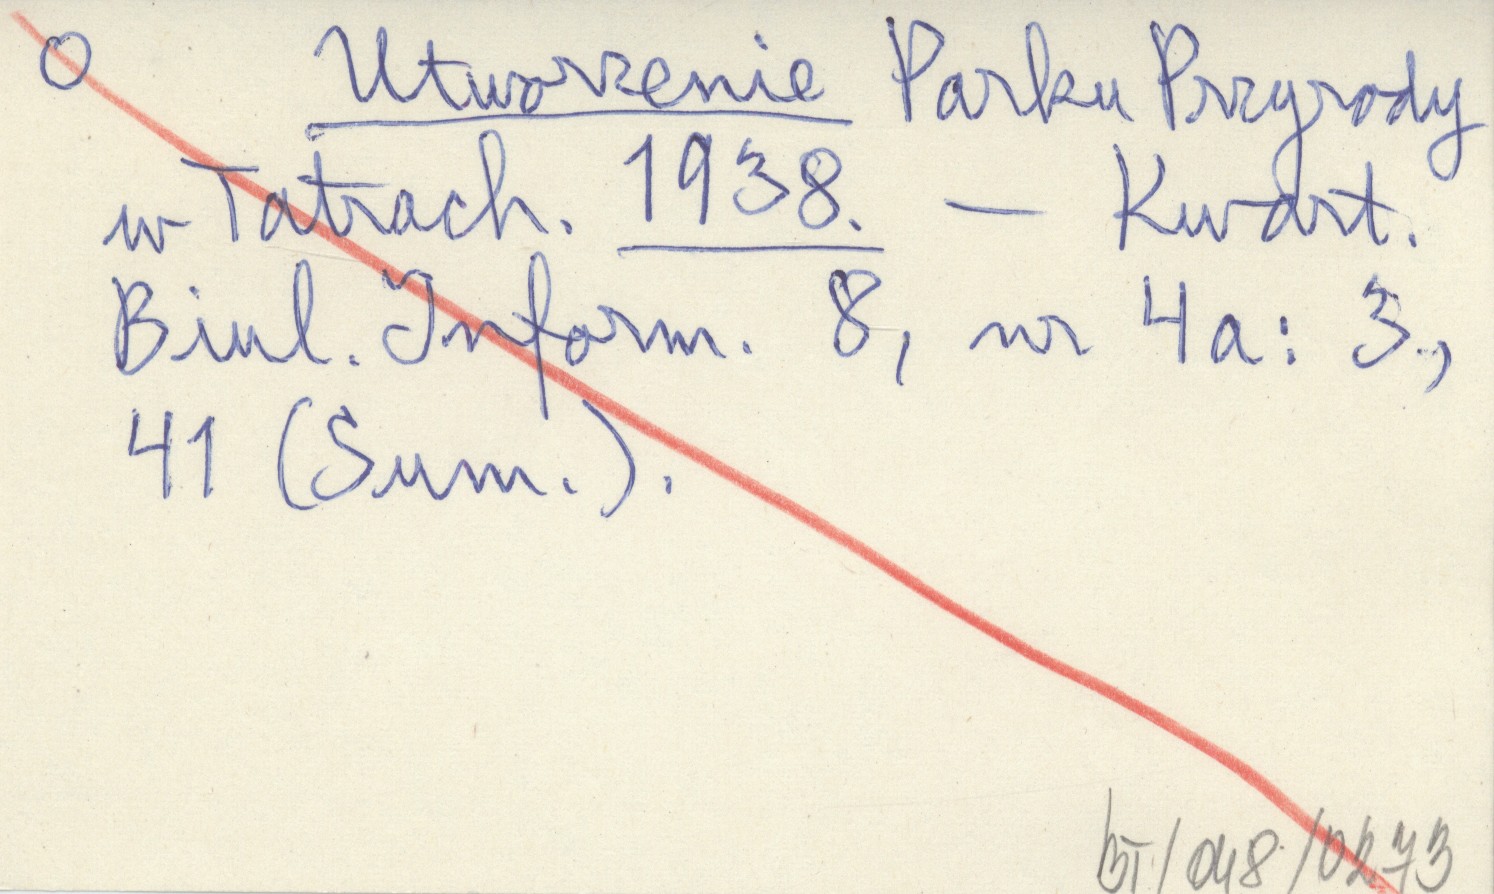 O Utworzenie Parku Przyrody
w Tatrach. 1938. — Kwart.
Biul. Inform. 8, nr 4a: 3.,
41 (Sum.).
BT/048/0273